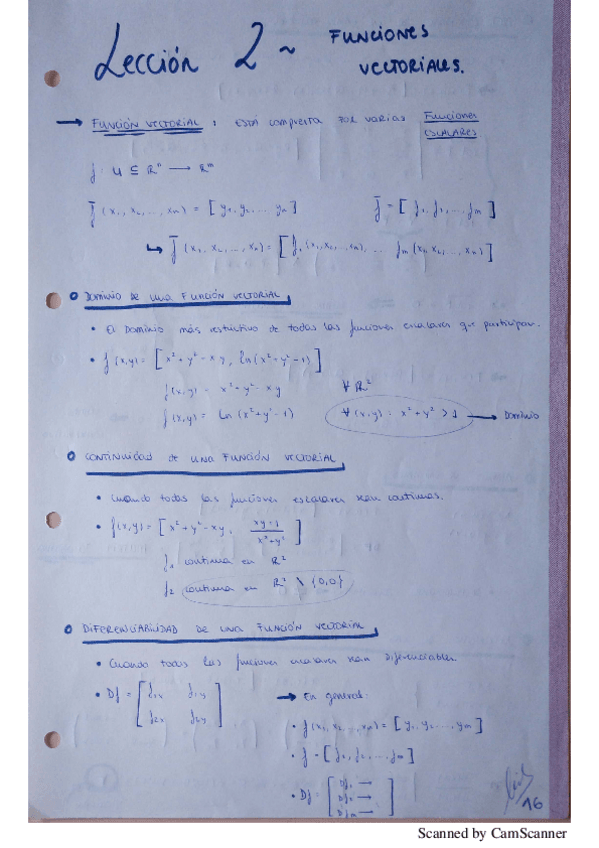 Lección 2 ~ FUNCIONES VECTORIALES.
→ FUNCIÓN VECTORIAL : ESTÁ compuesta por varias Funciones ESCALARES
f : U ⊆ ℝⁿ → ℝᵐ
f̄ (x₁, x₂, ..., xₙ) = [y₁, y₂, ... yₙ]    f̄ = [f₁, f₂, ..., fₘ]
↳ f̄ (x₁, x₂, ..., xₙ) = [f₁(x₁, x₂, ..., xₙ), ... fₘ(x₁, x₂, ..., xₙ)]
DOMINIO DE UNA FUNCIÓN VECTORIAL
• El Dominio más restrictivo de todas las funciones escalares que participan.
• f(x,y) = [x² + y² - xy, ln(x² + y² - 1)]
f(x,y) = x² + y² - xy    ∀ ℝ²
f(x,y) = Ln (x² + y² - 1)    ∀ (x,y) : x² + y² > 1 → Dominio
CONTINUIDAD de UNA FUNCIÓN VECTORIAL
• Cuando todas las funciones escalares sean continuas.
• f(x,y) = [x² + y² - xy, (xy+1)/(x²+y²)]
f₁ continua en ℝ²
f₂ continua en ℝ² \ {0,0}
DIFERENCIABILIDAD DE UNA FUNCIÓN VECTORIAL
• Cuando todas las funciones escalares sean Diferenciables.
• Df = [f₁ₓ f₁y
f₂ₓ f₂y]
→ En general:
• f(x₁, x₂, ..., xₙ) = [y₁, y₂, ... yₘ]
• f = [f₁, f₂, ... fₘ]
• Df = [Df₁ →
Df₂ →
Dfₘ →]
16
Scanned by CamScanner